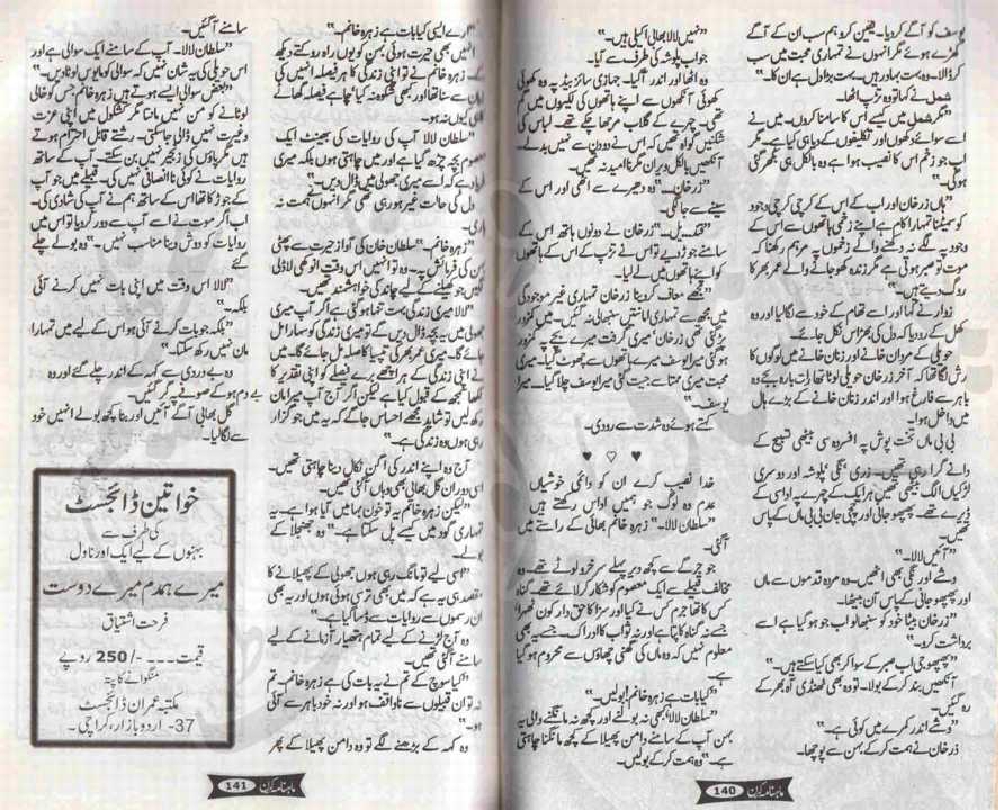 یوسف کو آگے کر دیا۔ یقین کرو ہم سب ان کے آگے
کھڑے ہوئے مگر انہوں نے تمہاری محبت میں سب
کر ڈالا۔ وہ بہت بہادر ہیں۔ بہت بڑا دل ہے ان کا۔“
شمل نے کہا تو وہ تڑپ اٹھا۔
”مگر شمل میں کیسے اس کا سامنا کروں۔ میں نے
اسے سوائے دکھوں اور تکلیفوں کے دیا ہی کیا ہے۔ مگر
اب جو زخم اس کا نصیب ہوا ہے وہ بالکل ہی بکھر گئی
ہو گی۔“
”ہاں زر خان اور اب کے اس کے کرچی کرچی وجود
کو سمیٹنا تمہارا کام ہے اپنے زخمی ہاتھوں سے اس کے
وجود پہ لگے نہ دکھنے والے زخموں پہ مرہم رکھنا کہ
موت تو صبر ہوتی ہے مگر زندہ کھو جانے والے عمر بھر کا
روگ دیتے ہیں۔“
زوار نے کہا اور اسے تھام کے خود سے لگا لیا اور وہ
کھل کے رو دیا کہ دل کی بھڑاس نکل جائے۔
حویلی کے مردان خانے اور زنان خانے میں لوگوں کا
رش لگا تھا کہ آخر زر خان حویلی لوٹا تھا رات بارہ بجے وہ
باہر سے فارغ ہوا اور اندر زنان خانے کے بڑے ہال
میں داخل ہوا۔
بی بی ماں تخت پوش پہ افسردہ سی بیٹھی تسبیح کے
دانے گرا رہی تھیں۔ زری، نگی، پلوشہ اور دوسری
لڑکیاں الگ بیٹھی تھیں ہر ایک کے چہرے پہ اداسی کے
ڈیرے تھے۔ پھپھو جانی اور چچی جان بی بی ماں کے پاس
تھیں۔
”آئیں لالا۔“
وشے اور نگی بھی اٹھیں۔ وہ مردہ قدموں سے ماں
اور پھپھو جانی کے پاس آن بیٹھا۔
”زر خان بیٹا خود کو سنبھالو اب جو ہو گیا ہے اسے
برداشت کرو۔“
”پھپھو جی اب صبر کے سوا کر بھی کیا سکتے ہیں۔“
آنکھیں بند کر کے بولا۔ تو وہ بھی ٹھنڈی آہ بھر کے
رہ گئیں۔
”وشے اندر کمرے میں کوئی ہے۔“
زر خان نے ہمت کر کے بہن سے پوچھا۔
”نہیں لالا بھابی اکیلی ہیں۔“
جواب پلوشہ کی طرف سے آیا۔
وہ اٹھا اور اندر آگیا۔ جہازی سائز بیڈ پہ وہ کھوئی
کھوئی آنکھوں سے اپنے ہاتھوں کی لکیروں میں گم
تھی۔ چہرے کے گلاب مرجھا چکے تھے۔ لباس کی
شکنیں گواہ تھیں کہ اس نے دو دن سے نہیں بدلے۔
آنکھیں بالکل ویران مگر ناامید نہ تھیں۔
”زر خان۔“ وہ دھیرے سے اٹھی اور اس کے
سینے سے جا لگی۔
”قندیل۔“ زر خان نے دونوں ہاتھ اس کے
سامنے جوڑ دیے تو اس نے تڑپ کے اس کے ہاتھوں
کو اپنے ہاتھوں میں لے لیا۔
”مجھے معاف کر دینا زر خان تمہاری غیر موجودگی
میں مجھ سے تمہاری امانتیں سنبھالی نہ گئیں۔ میں کمزور
پڑ گئی تھی زر خان میری گرفت میرے بچے پہ کمزور
ہو گئی میرا یوسف میرے ہاتھوں سے چھوٹ گیا۔ میری
محبت میری ممتا سے جیت گئی میرا یوسف چلا گیا۔ میرا
یوسف۔“
کہتے ہوئے وہ شدت سے رو دی۔
♥ ♡ ♥
خدا نصیب کرے ان کو دائمی خوشیاں
عدم وہ لوگ جو ہمیں اداس رکھتے ہیں
”سلطان لالا۔“ زہرہ خانم بھائی کے راستے میں
آگئی۔
جو جرگے سے کچھ دیر پہلے سرخرو لوٹے تھے۔ وہ
مخالف قبیلے سے ایک معصوم کو شکار کر لائے تھے۔ گناہ
کس کا تھا جرم کس نے کیا اور سزا کا حق دار کون ٹھہرا
جسے نہ گناہ کا پتا ہے اور نہ ثواب کا ادراک۔ جسے یہ بھی
معلوم نہیں کہ وہ ماں کی گھنی چھاؤں سے محروم ہو گیا
ہے۔
”کیا بات ہے زہرہ خانم! بولیں۔“
”سلطان لالا‘ کبھی نہ بولنے اور کچھ نہ مانگنے والی یہ
بہن آپ کے سامنے دامن پھیلا کے کچھ مانگنا چاہتی
ہے۔“ وہ ہمت کر کے بولیں۔
ماہنامہ کرن 140
”ارے ایسی کیا بات ہے زہرہ خانم۔“
انہیں بھی حیرت ہوئی بہن کو یوں راہ روکتے دیکھ
زہرہ خانم نے تو اپنی زندگی کا ہر فیصلہ انہیں کی
سے سنا تھا اور کبھی شکوہ نہ کیا‘ چاہے فیصلہ گھاٹے
کا ہی کیوں نہ ہو۔
”سلطان لالا آپ کی روایات کی بھینٹ ایک
معصوم بچہ چڑھ گیا ہے اور میں چاہتی ہوں بلکہ میری
ہے کہ اسے میری جھولی میں ڈال دیں۔“
دل کی حالت غیر ہو رہی تھی مگر انہوں نے ہمت نہ
ہاری۔
”زہرہ خانم۔“ سلطان خان کی آواز حیرت سے پھٹی
بہن کی فرمائش پہ۔ وہ تو انہیں اس وقت انوکھی لاڈلی
لگیں جو کھیلنے کے لیے چاند کی خواہشمند تھیں۔
”لالا میری زندگی بہت تنہا ہو گئی ہے اگر آپ میری
جھولی میں یہ بچہ ڈال دیں گے تو میری زندگی کو سہارا مل
جائے گا۔ میری عمر بھر کی تپسیا کا صلہ مل جائے گا۔ میں
نے اپنی زندگی کے ہر اچھے برے فیصلے کو اپنی تقدیر کا
لکھا سمجھ کے قبول کیا ہے لیکن اگر آج آپ میرا مان
رکھ لیں تو شاید مجھے احساس جاگے کہ یہ میں جو گزار
رہی ہوں وہ زندگی ہے۔“
آج وہ اپنے اندر کی اگن نکال دینا چاہتی تھیں۔
اسی دوران گل بھائی بھی وہاں آگئی تھیں۔
”لیکن زہرہ خانم یہ تو خون بہا میں آیا ہوا ہے۔ یہ
تمہاری گود میں کیسے پل سکتا ہے۔“ وہ جھنجلا کے
بولے۔
”اسی لیے تو مانگ رہی ہوں جھولی کے پھیلانے کا
مقصد ہی یہ ہے کہ میں بھی ترسی ہوئی ہوں اور یہ بھی
ان رسموں سے روایات سے ڈسا گیا ہے۔“
وہ آج لڑنے کے لیے تمام ہتھیار آزمانے کے لیے
سامنے آگئی تھیں۔
”کیا سوچ کے تم نے یہ بات کی ہے زہرہ خانم۔ تم
نہ تو ان قبیلوں سے ناواقف ہو اور نہ خود باہر سے آئی
ہو۔“
وہ کہہ کے بڑھنے لگے تو وہ دامن پھیلا کے پھر
سامنے آگئیں۔
”سلطان لالا۔ آپ کے سامنے ایک سوالی ہے اور
اس حویلی کی یہ شان نہیں کہ سوالی کو مایوس لوٹا دیں۔“
”بعض سوالی ایسے ہوتے ہیں زہرہ خانم جس کو خالی
لوٹانے کو من نہیں مانتا مگر کشکول میں اپنی عزت
و غیرت نہیں ڈالی جا سکتی۔ رشتے قابل احترام ہوتے
ہیں مگر پاؤں کی زنجیر نہیں بن سکتے۔ آپ کے ساتھ
روایات نے کوئی ناانصافی نہیں کی۔ قبیلے میں جو آپ
کے جوڑ کا تھا اس کے ساتھ ہم نے آپ کی شادی کی۔
اب اگر موت نے اسے آپ سے دور کر دیا تو اس میں
روایات کو دوش دینا مناسب نہیں۔“ وہ بولے چلے
گئے
”لالا اس وقت میں اپنی بات نہیں کرنے آئی
بلکہ۔“
”بلکہ جو بات کرنے آئی ہو اس کے لیے میں تمہارا
مان نہیں رکھ سکتا۔“
وہ بے دردی سے کہہ کے اندر چلے گئے اور وہ
بے دم ہو کے صوفے پر گر گئیں۔
گل بھابی آگے آئیں اور بنا کچھ بولے انہیں خود
سے لگا لیا۔
خواتین ڈائجسٹ
کی طرف سے
بہنوں کے لیے ایک اور ناول
میرے ہمدم میرے دوست
فرحت اشتیاق
قیمت --- /- 250 روپے
منگوانے کا پتہ
مکتبہ عمران ڈائجسٹ
37- اردو بازار، کراچی۔
ماہنامہ کرن 141